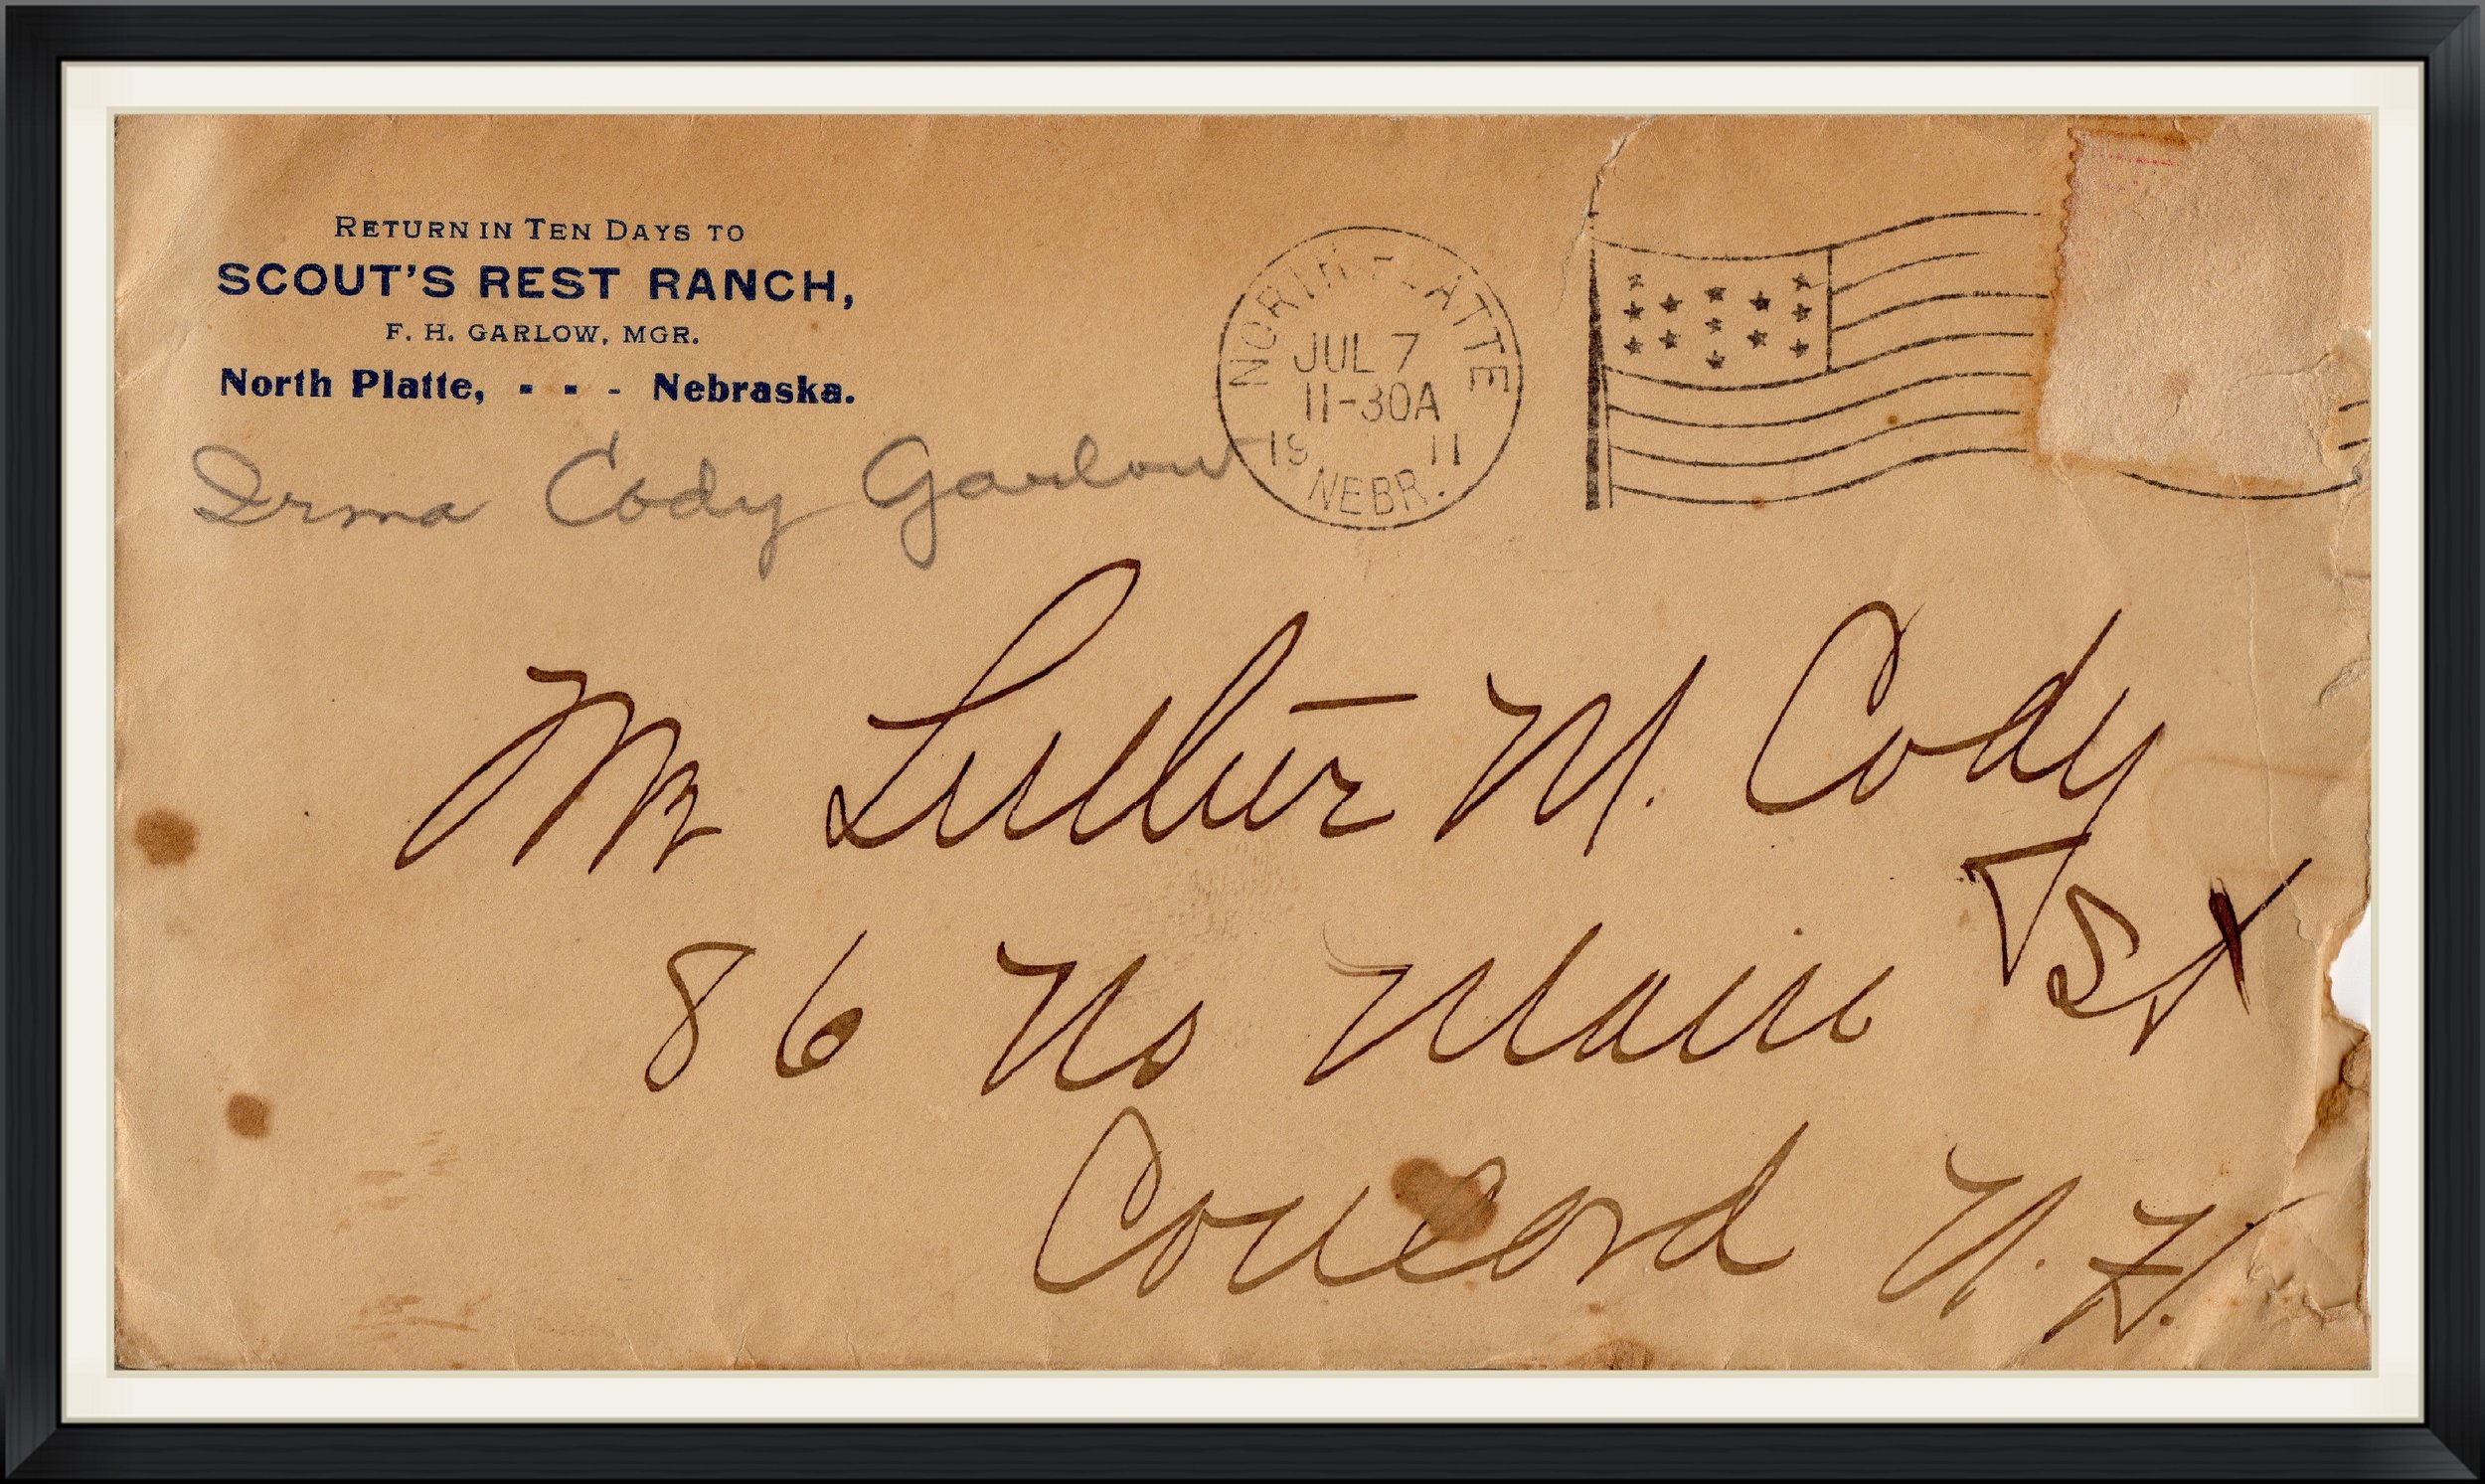 RETURN IN TEN DAYS TO
SCOUT'S REST RANCH,
F. H. GARLOW, MGR.
North Platte, - - - Nebraska.
Irma Cody Garlow
NORTH PLATTE
JUL 7
11-30A
19 11
NEBR.
Mr Luther M. Cody
86 No Main St
Concord N. H.